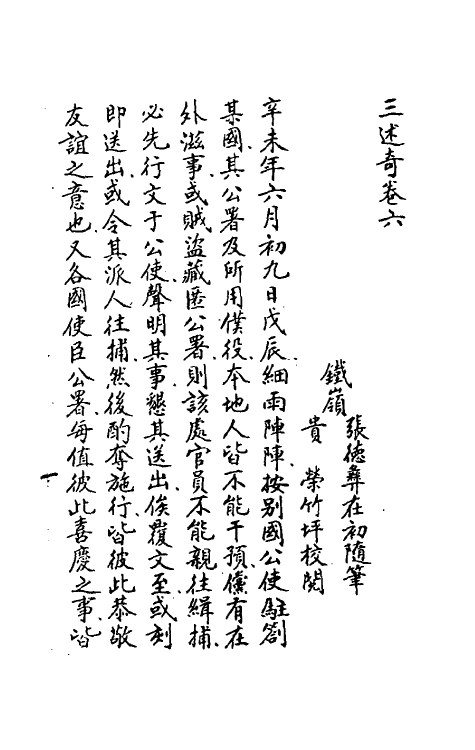 三述奇卷六
鐵嶺張德彝在初隨筆
貴榮竹坪校閱
辛未年六月初九日戊辰細雨陣陣按別國公使駐劄
某國其公署及所用僕役本地人皆不能干預儻有在
外滋事或賊盜藏匿公署則該處官員不能親往緝捕
必先行文于公使聲明其事懇其送出俟覆文至或刻
即送出或令其派人往捕然後酌奪施行皆彼此恭敬
友誼之意也又各國使臣公署每值彼此喜慶之事皆
一